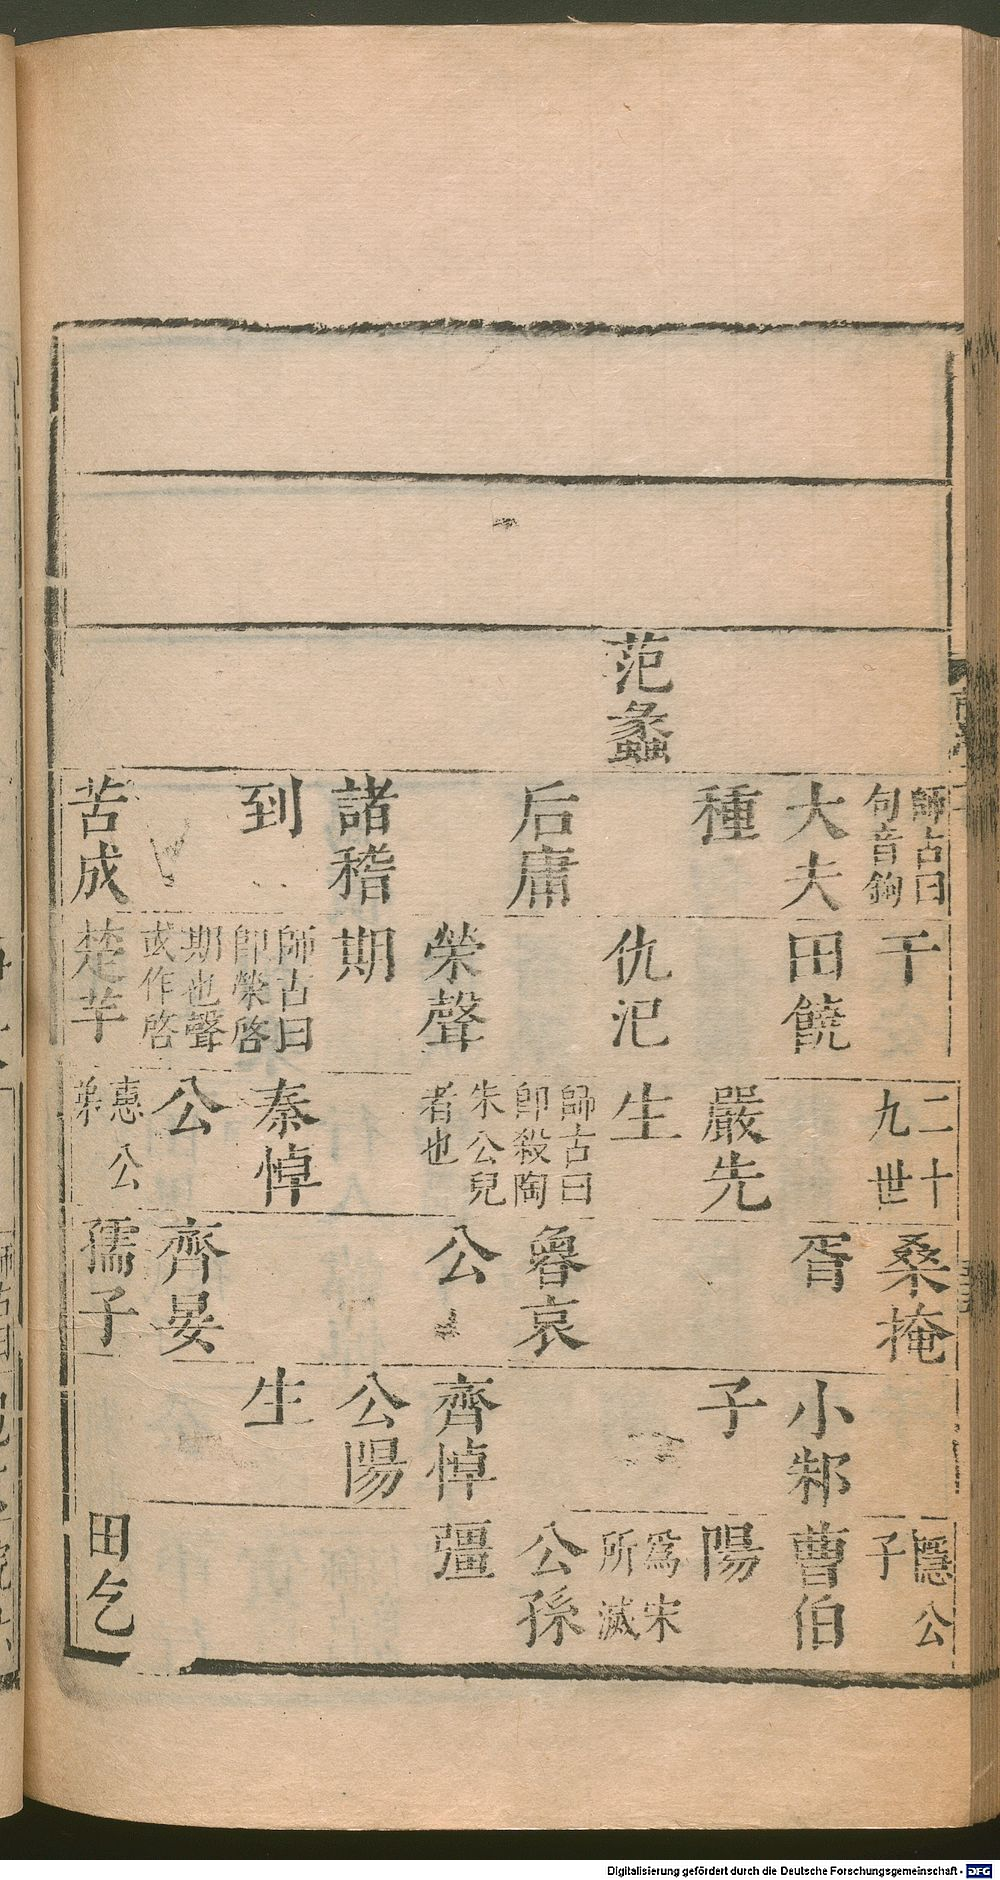 范蠡
師古曰
句音鉤
大夫
種
后庸
諸稽
到
苦成
干
田饒
仇汜
榮聲
期
師古曰
即榮啓
期也聲
或作啓
楚芋
二十
九世
嚴先
生
師古曰
即殺陶
朱公兒
者也
秦悼
公
惠公
弟
桑掩
胥
魯哀
公
齊晏
孺子
小邾
子
齊悼
公陽
生
隱公
子
曹伯
陽
為宋
所滅
公孫
彊
田乞
Digitalisierung gefördert durch die Deutsche Forschungsgemeinschaft - DFG